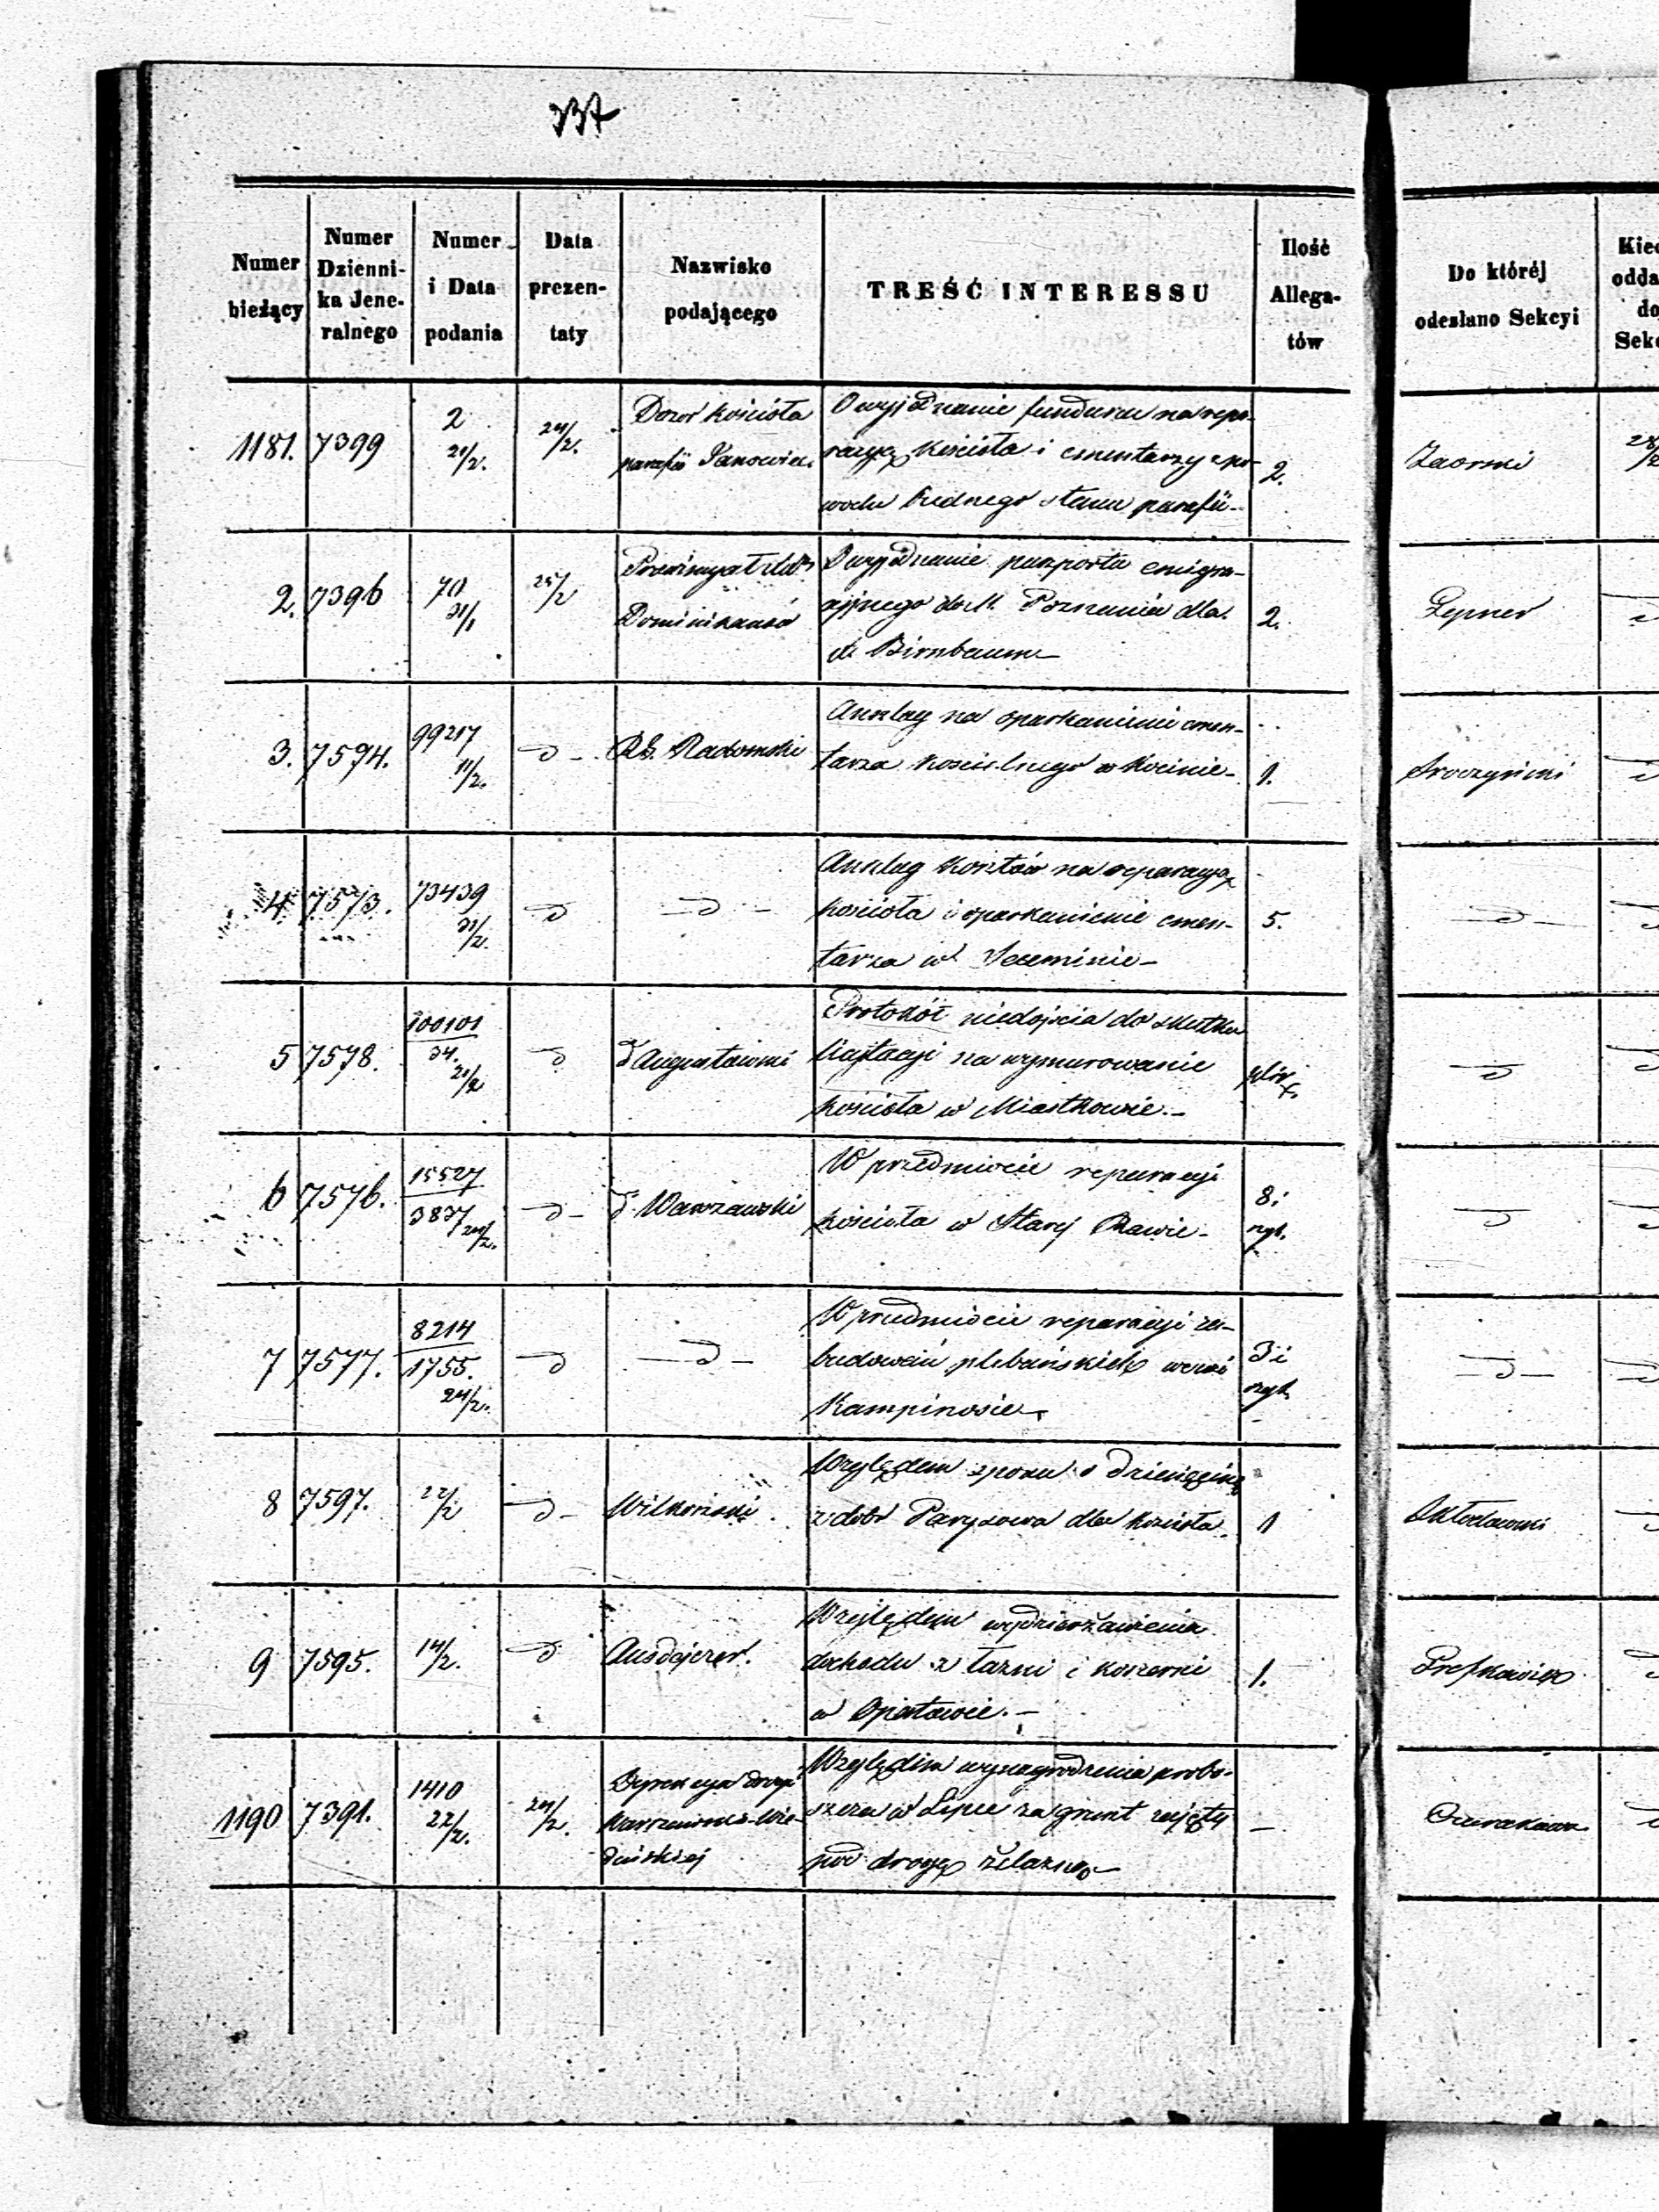 337
Numer bieżący
Numer Dzienni-
ka Jene-
ralnego
Numer i Data podania
Data prezen-
taty
Nazwisko podającego
TREŚĆ INTERESSU
Ilość Allega-
tów
Do któréj odesłano Sekcyi
1181. 7399 2 21/2. 24/2. Dozór kościoła
parafii Janowiec
O wyjednanie funduszu na repa-
racyą kościoła i cmentarzy z po-
wodu biednego stanu parafii
2.
28/2
2. 7396 70 31/1 25/2
Dominikanów
O wyjednanie paszportu emigra-
cyjnego do M. Poznania dla
Birnbaum
2.
Lepner
3. 7594. 99217 11/2. d -
Rb. Radomski
Anszlag na oparkanienie cmen-
tarza kościelnego w
1.
Sroczyński
4 7573. 73439 d d
Anszlag kosztów na reparacyą
kościoła i oparkanienie cmen-
tarza w
5.
d
5 7578. 100101
34. 21/2 d
d Augustowski
Protokół niedojścia do skutku
licytacyi na wymurowanie
kościoła w Miastkowie. -
d
6 7576. 15527
3837 24/2. d -
d Warszawski
W przedmiocie reparacyi
kościoła w Starej Rawie -
8 i
d
7 7577. 8214
1755. 24/2. d d -
W przedmiocie reparacyi za-
budowań plebańskich we wsi
Kampinosie
3 i
d
8 7597. 22/2 d -
Względem sporu o dziesięcinę
z dóbr Parysowa dla kościoła.
1
9 7595. 14/2. d
Względem wydzierżawienia
dochodu z łaźni i koszerni
w Opatowie. -
1.
1190 7391. 1410 22/2. 24/2.
Dyrekcya Drogi
Warszawsko-Wie-
deńskiej
Względem wynagrodzenia probo-
szcza w Lipce za grunt zajęty
pod drogę żelazną
-